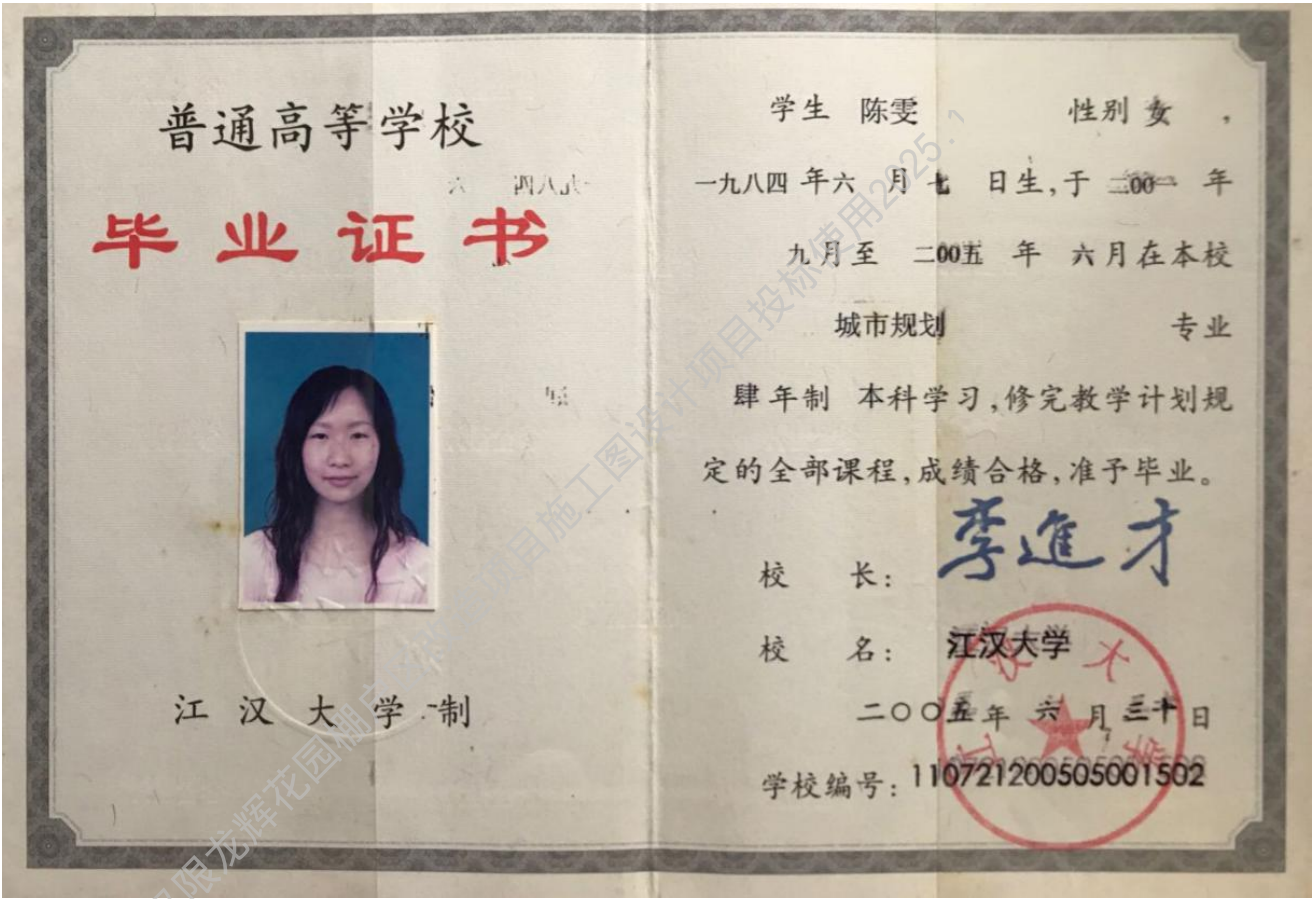 普通高等学校
毕业证书
江汉大学制
学生 陈雯 性别 女，
一九八四年六月七日生，于二00一年
九月至二00五年六月在本校
城市规划 专业
肆年制 本科学习，修完教学计划规
定的全部课程，成绩合格，准予毕业。
校长：李進才
校名：江汉大学
二〇〇五年六月三十日
学校编号：110721200505001502
江汉大学
限龙辉花园棚户区改造项目施工图设计项目投标使用2025.1